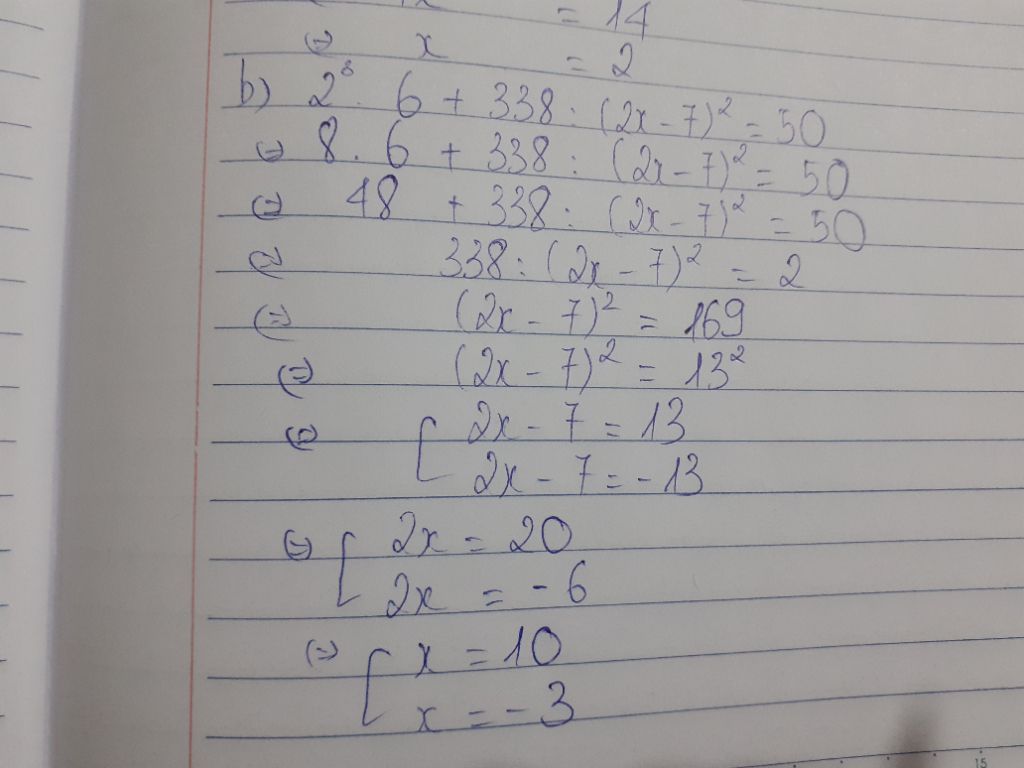 = 14
⇔ x = 2
b) 2³ . 6 + 338 : (2x - 7)² = 50
⇔ 8 . 6 + 338 : (2x - 7)² = 50
⇔ 48 + 338 : (2x - 7)² = 50
⇔ 338 : (2x - 7)² = 2
⇔ (2x - 7)² = 169
⇔ (2x - 7)² = 13²
⇔ [ 2x - 7 = 13
2x - 7 = - 13
⇔ [ 2x = 20
2x = - 6
⇔ [ x = 10
x = - 3
15